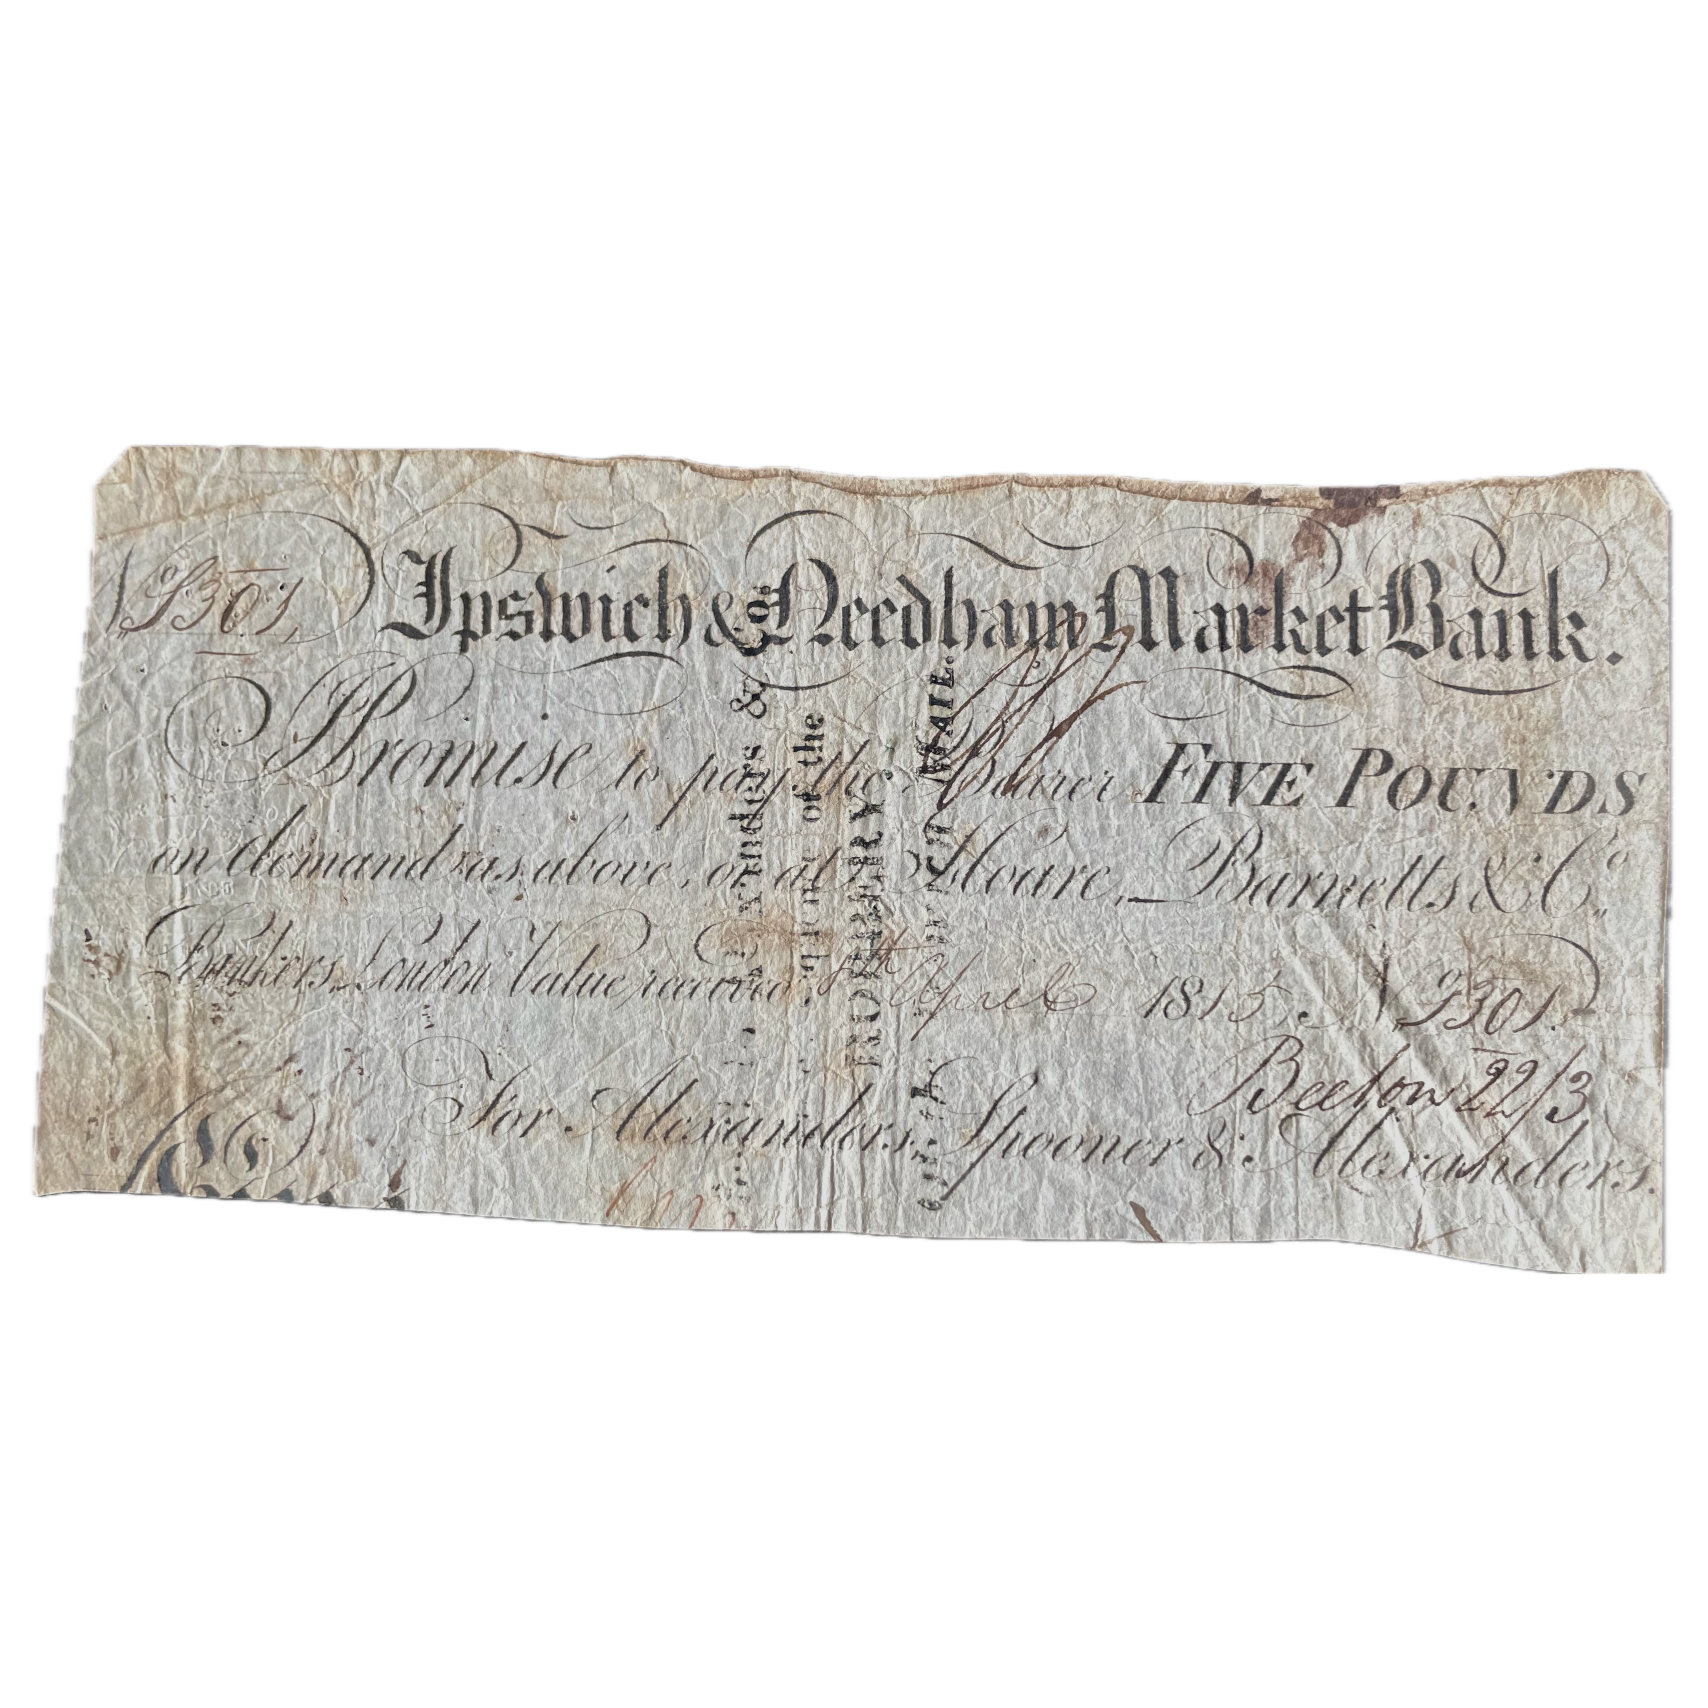 L301, Ipswich & Needham Market Bank.
I Promise to pay the Bearer FIVE POUNDS
on demand as above, or at Hoare, Barnetts & Co.
Bankers, London Value received 8th April 1815, No L301.
Beeton 22/3
For Alexanders, Spooner & Alexanders.
Alexanders & Co.
of the
ROBBERY
MAIL.